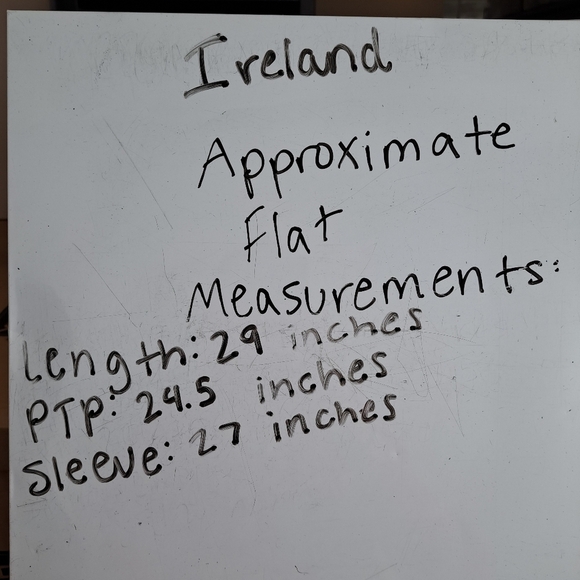 Ireland
Approximate
Flat
Measurements:
Length: 29 inches
PTP: 24.5 inches
Sleeve: 27 inches